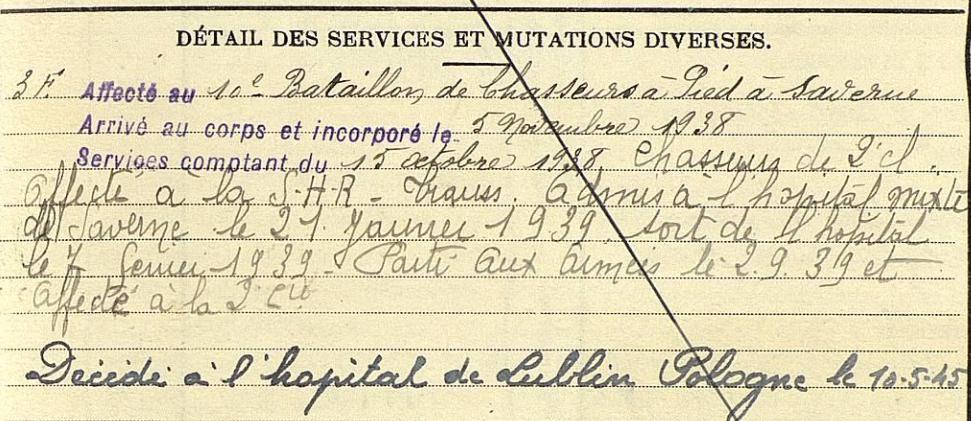 DÉTAIL DES SERVICES ET MUTATIONS DIVERSES.
3 F. Affecté au 10e Bataillon de Chasseurs à Pied à Saverne
Arrivé au corps et incorporé le 5 Novembre 1938
Services comptant du 15 octobre 1938. Chasseur de 2e cl.
Affecté à la S.H.R - Admis à l'hopital mixte
de Saverne le 21 Janvier 1939, sort de l'hopital
le 7 fevrier 1939 - Parti aux armées le 2.9.39 et
affecté à la 2e Cie
Décédé à l'hopital de Lublin Pologne le 10-5-45